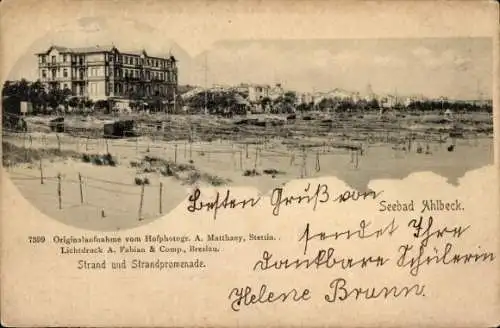 Besten Gruß von
Seebad Ahlbeck.
7599 Originalaufnahme vom Hofphotogr. A. Matthaey, Stettin.
Lichtdruck A. Fabian & Comp., Breslau.
Strand und Strandpromenade.
sendet Ihre
dankbare Schülerin
Helene Braun.